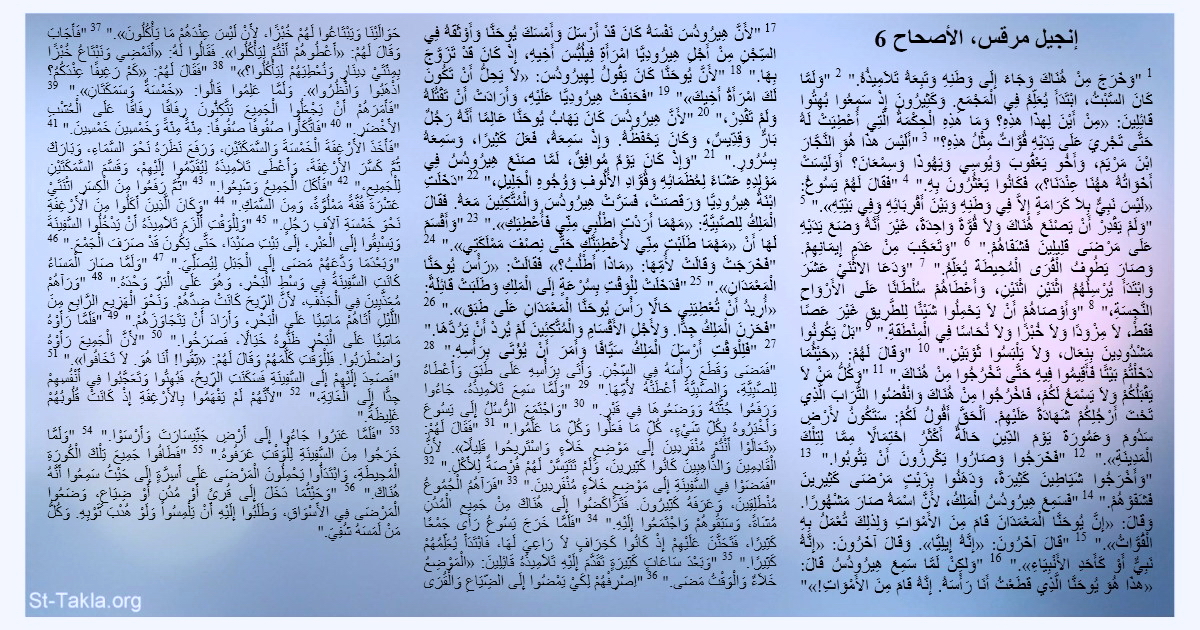 إنجيل مرقس، الأصحاح 6
1 "وَخَرَجَ مِنْ هُنَاكَ وَجَاءَ إِلَى وَطَنِهِ وَتَبِعَهُ تَلاَمِيذُهُ." 2 "وَلَمَّا
كَانَ السَّبْتُ، ابْتَدَأَ يُعَلِّمُ فِي الْمَجْمَعِ. وَكَثِيرُونَ إِذْ سَمِعُوا بُهِتُوا
قَائِلِينَ: «مِنْ أَيْنَ لِهذَا هذِهِ؟ وَمَا هذِهِ الْحِكْمَةُ الَّتِي أُعْطِيَتْ لَهُ
حَتَّى تَجْرِيَ عَلَى يَدَيْهِ قُوَّاتٌ مِثْلُ هذِهِ؟" 3 "أَلَيْسَ هذَا هُوَ النَّجَّارَ
ابْنَ مَرْيَمَ، وَأَخُو يَعْقُوبَ وَيُوسِي وَيَهُوذَا وَسِمْعَانَ؟ أَوَلَيْسَتْ
أَخَوَاتُهُ ههُنَا عِنْدَنَا؟» فَكَانُوا يَعْثُرُونَ بِهِ." 4 "فَقَالَ لَهُمْ يَسُوعُ:
«لَيْسَ نَبِيٌّ بِلاَ كَرَامَةٍ إِلاَّ فِي وَطَنِهِ وَبَيْنَ أَقْرِبَائِهِ وَفِي بَيْتِهِ»." 5
"وَلَمْ يَقْدِرْ أَنْ يَصْنَعَ هُنَاكَ وَلاَ قُوَّةً وَاحِدَةً، غَيْرَ أَنَّهُ وَضَعَ يَدَيْهِ
عَلَى مَرْضَى قَلِيلِينَ فَشَفَاهُمْ." 6 "وَتَعَجَّبَ مِنْ عَدَمِ إِيمَانِهِمْ.
وَصَارَ يَطُوفُ الْقُرَى الْمُحِيطَةَ يُعَلِّمُ." 7 "وَدَعَا الاثْنَيْ عَشَرَ
وَابْتَدَأَ يُرْسِلُهُمُ اثْنَيْنِ اثْنَيْنِ، وَأَعْطَاهُمْ سُلْطَانًا عَلَى الأَرْوَاحِ
النَّجِسَةِ،" 8 "وَأَوْصَاهُمْ أَنْ لاَ يَحْمِلُوا شَيْئًا لِلطَّرِيقِ غَيْرَ عَصًا
فَقَطْ، لاَ مِزْوَدًا وَلاَ خُبْزًا وَلاَ نُحَاسًا فِي الْمِنْطَقَةِ." 9 "بَلْ يَكُونُوا
مَشْدُودِينَ بِنِعَال، وَلاَ يَلْبَسُوا ثَوْبَيْنِ." 10 "وَقَالَ لَهُمْ: «حَيْثُمَا
دَخَلْتُمْ بَيْتًا فَأَقِيمُوا فِيهِ حَتَّى تَخْرُجُوا مِنْ هُنَاكَ." 11 "وَكُلُّ مَنْ لاَ
يَقْبَلُكُمْ وَلاَ يَسْمَعُ لَكُمْ، فَاخْرُجُوا مِنْ هُنَاكَ وَانْفُضُوا التُّرَابَ الَّذِي
تَحْتَ أَرْجُلِكُمْ شَهَادَةً عَلَيْهِمْ. اَلْحَقَّ أَقُولُ لَكُمْ: سَتَكُونُ لأَرْضِ
سَدُومَ وَعَمُورَةَ يَوْمَ الدِّينِ حَالَةٌ أَكْثَرُ احْتِمَالاً مِمَّا لِتِلْكَ
الْمَدِينَةِ»." 12 "فَخَرَجُوا وَصَارُوا يَكْرِزُونَ أَنْ يَتُوبُوا." 13
"وَأَخْرَجُوا شَيَاطِينَ كَثِيرَةً، وَدَهَنُوا بِزَيْتٍ مَرْضَى كَثِيرِينَ
فَشَفَوْهُمْ." 14 "فَسَمِعَ هِيرُودُسُ الْمَلِكُ، لأَنَّ اسْمَهُ صَارَ مَشْهُورًا.
وَقَالَ: «إِنَّ يُوحَنَّا الْمَعْمَدَانَ قَامَ مِنَ الأَمْوَاتِ وَلِذلِكَ تُعْمَلُ بِهِ
الْقُوَّاتُ»." 15 "قَالَ آخَرُونَ: «إِنَّهُ إِيلِيَّا». وَقَالَ آخَرُونَ: «إِنَّهُ
نَبِيٌّ أَوْ كَأَحَدِ الأَنْبِيَاءِ»." 16 "وَلكِنْ لَمَّا سَمِعَ هِيرُودُسُ قَالَ:
«هذَا هُوَ يُوحَنَّا الَّذِي قَطَعْتُ أَنَا رَأْسَهُ. إِنَّهُ قَامَ مِنَ الأَمْوَاتِ!»"
17 "لأَنَّ هِيرُودُسَ نَفْسَهُ كَانَ قَدْ أَرْسَلَ وَأَمْسَكَ يُوحَنَّا وَأَوْثَقَهُ فِي
السِّجْنِ مِنْ أَجْلِ هِيرُودِيَّا امْرَأَةِ فِيلُبُّسَ أَخِيهِ، إِذْ كَانَ قَدْ تَزَوَّجَ
بِهَا." 18 "لأَنَّ يُوحَنَّا كَانَ يَقُولُ لِهِيرُودُسَ: «لاَ يَحِلُّ أَنْ تَكُونَ
لَكَ امْرَأَةُ أَخِيكَ»" 19 "فَحَنِقَتْ هِيرُودِيَّا عَلَيْهِ، وَأَرَادَتْ أَنْ تَقْتُلَهُ
وَلَمْ تَقْدِرْ،" 20 "لأَنَّ هِيرُودُسَ كَانَ يَهَابُ يُوحَنَّا عَالِمًا أَنَّهُ رَجُلٌ
بَارٌّ وَقِدِّيسٌ، وَكَانَ يَحْفَظُهُ. وَإِذْ سَمِعَهُ، فَعَلَ كَثِيرًا، وَسَمِعَهُ
بِسُرُورٍ." 21 "وَإِذْ كَانَ يَوْمٌ مُوافِقٌ، لَمَّا صَنَعَ هِيرُودُسُ فِي
مَوْلِدِهِ عَشَاءً لِعُظَمَائِهِ وَقُوَّادِ الأُلُوفِ وَوُجُوهِ الْجَلِيلِ،" 22 "دَخَلَتِ
ابْنَةُ هِيرُودِيَّا وَرَقَصَتْ، فَسَرَّتْ هِيرُودُسَ وَالْمُتَّكِئِينَ مَعَهُ. فَقَالَ
الْمَلِكُ لِلصَّبِيَّةِ: «مَهْمَا أَرَدْتِ اطْلُبِي مِنِّي فَأُعْطِيَكِ»." 23 "وَأَقْسَمَ
لَهَا أَنْ «مَهْمَا طَلَبْتِ مِنِّي لأُعْطِيَنَّكِ حَتَّى نِصْفَ مَمْلَكَتِي»." 24
"فَخَرَجَتْ وَقَالَتْ لأُمِّهَا: «مَاذَا أَطْلُبُ؟» فَقَالَتْ: «رَأْسَ يُوحَنَّا
الْمَعْمَدَانِ»." 25 "فَدَخَلَتْ لِلْوَقْتِ بِسُرْعَةٍ إِلَى الْمَلِكِ وَطَلَبَتْ قَائِلَةً:
«أُرِيدُ أَنْ تُعْطِيَنِي حَالاً رَأْسَ يُوحَنَّا الْمَعْمَدَانِ عَلَى طَبَق»." 26
"فَحَزِنَ الْمَلِكُ جِدًّا. وَلأَجْلِ الأَقْسَامِ وَالْمُتَّكِئِينَ لَمْ يُرِدْ أَنْ يَرُدَّهَا."
27 "فَلِلْوَقْتِ أَرْسَلَ الْمَلِكُ سَيَّافًا وَأَمَرَ أَنْ يُؤْتَى بِرَأْسِهِ." 28
"فَمَضَى وَقَطَعَ رَأْسَهُ فِي السِّجْنِ. وَأَتَى بِرَأْسِهِ عَلَى طَبَق وَأَعْطَاهُ
لِلصَّبِيَّةِ، وَالصَّبِيَّةُ أَعْطَتْهُ لأُمِّهَا." 29 "وَلَمَّا سَمِعَ تَلاَمِيذُهُ، جَاءُوا
وَرَفَعُوا جُثَّتَهُ وَوَضَعُوهَا فِي قَبْرٍ." 30 "وَاجْتَمَعَ الرُّسُلُ إِلَى يَسُوعَ
وَأَخْبَرُوهُ بِكُلِّ شَيْءٍ، كُلِّ مَا فَعَلُوا وَكُلِّ مَا عَلَّمُوا." 31 "فَقَالَ لَهُمْ:
«تَعَالَوْا أَنْتُمْ مُنْفَرِدِينَ إِلَى مَوْضِعٍ خَلاَءٍ وَاسْتَرِيحُوا قَلِيلاً». لأَنَّ
الْقَادِمِينَ وَالذَّاهِبِينَ كَانُوا كَثِيرِينَ، وَلَمْ تَتَيَسَّرْ لَهُمْ فُرْصَةٌ لِلأَكْلِ." 32
"فَمَضَوْا فِي السَّفِينَةِ إِلَى مَوْضِعٍ خَلاَءٍ مُنْفَرِدِينَ." 33 "فَرَآهُمُ الْجُمُوعُ
مُنْطَلِقِينَ، وَعَرَفَهُ كَثِيرُونَ. فَتَرَاكَضُوا إِلَى هُنَاكَ مِنْ جَمِيعِ الْمُدُنِ
مُشَاةً، وَسَبَقُوهُمْ وَاجْتَمَعُوا إِلَيْهِ." 34 "فَلَمَّا خَرَجَ يَسُوعُ رَأَى جَمْعًا
كَثِيرًا، فَتَحَنَّنَ عَلَيْهِمْ إِذْ كَانُوا كَخِرَافٍ لاَ رَاعِيَ لَهَا، فَابْتَدَأَ يُعَلِّمُهُمْ
كَثِيرًا." 35 "وَبَعْدَ سَاعَاتٍ كَثِيرَةٍ تَقَدَّمَ إِلَيْهِ تَلاَمِيذُهُ قَائِلِينَ: «الْمَوْضِعُ
خَلاَءٌ وَالْوَقْتُ مَضَى." 36 "اِصْرِفْهُمْ لِكَيْ يَمْضُوا إِلَى الضِّيَاعِ وَالْقُرَى
حَوَالَيْنَا وَيَبْتَاعُوا لَهُمْ خُبْزًا، لأَنْ لَيْسَ عِنْدَهُمْ مَا يَأْكُلُونَ»." 37 "فَأَجَابَ
وَقَالَ لَهُمْ: «أَعْطُوهُمْ أَنْتُمْ لِيَأْكُلُوا». فَقَالُوا لَهُ: «أَنَمْضِي وَنَبْتَاعُ خُبْزًا
بِمِئَتَيْ دِينَارٍ وَنُعْطِيَهُمْ لِيَأْكُلُوا؟»" 38 "فَقَالَ لَهُمْ: «كَمْ رَغِيفًا عِنْدَكُمُ؟
اذْهَبُوا وَانْظُرُوا». وَلَمَّا عَلِمُوا قَالُوا: «خَمْسَةٌ وَسَمَكَتَانِ»." 39
"فَأَمَرَهُمْ أَنْ يَجْعَلُوا الْجَمِيعَ يَتَّكِئُونَ رِفَاقًا رِفَاقًا عَلَى الْعُشْبِ
الأَخْضَرِ." 40 "فَاتَّكَأُوا صُفُوفًا صُفُوفًا: مِئَةً مِئَةً وَخَمْسِينَ خَمْسِينَ." 41
"فَأَخَذَ الأَرْغِفَةَ الْخَمْسَةَ وَالسَّمَكَتَيْنِ، وَرَفَعَ نَظَرَهُ نَحْوَ السَّمَاءِ، وَبَارَكَ
ثُمَّ كَسَّرَ الأَرْغِفَةَ، وَأَعْطَى تَلاَمِيذَهُ لِيُقَدِّمُوا إِلَيْهِمْ، وَقَسَّمَ السَّمَكَتَيْنِ
لِلْجَمِيعِ،" 42 "فَأَكَلَ الْجَمِيعُ وَشَبِعُوا." 43 "ثُمَّ رَفَعُوا مِنَ الْكِسَرِ اثْنَتَيْ
عَشْرَةَ قُفَّةً مَمْلُوَّةً، وَمِنَ السَّمَكِ." 44 "وَكَانَ الَّذِينَ أَكَلُوا مِنَ الأَرْغِفَةِ
نَحْوَ خَمْسَةِ آلاَفِ رَجُل." 45 "وَلِلْوَقْتِ أَلْزَمَ تَلاَمِيذَهُ أَنْ يَدْخُلُوا السَّفِينَةَ
وَيَسْبِقُوا إِلَى الْعَبْرِ، إِلَى بَيْتِ صَيْدَا، حَتَّى يَكُونَ قَدْ صَرَفَ الْجَمْعَ." 46
"وَبَعْدَمَا وَدَّعَهُمْ مَضَى إِلَى الْجَبَلِ لِيُصَلِّيَ." 47 "وَلَمَّا صَارَ الْمَسَاءُ
كَانَتِ السَّفِينَةُ فِي وَسْطِ الْبَحْرِ، وَهُوَ عَلَى الْبَرِّ وَحْدَهُ." 48 "وَرَآهُمْ
مُعَذَّبِينَ فِي الْجَذْفِ، لأَنَّ الرِّيحَ كَانَتْ ضِدَّهُمْ. وَنَحْوَ الْهَزِيعِ الرَّابعِ مِنَ
اللَّيْلِ أَتَاهُمْ مَاشِيًا عَلَى الْبَحْرِ، وَأَرَادَ أَنْ يَتَجَاوَزَهُمْ." 49 "فَلَمَّا رَأَوْهُ
مَاشِيًا عَلَى الْبَحْرِ ظَنُّوهُ خَيَالاً، فَصَرَخُوا." 50 "لأَنَّ الْجَمِيعَ رَأَوْهُ
وَاضْطَرَبُوا. فَلِلْوَقْتِ كَلَّمَهُمْ وَقَالَ لَهُمْ: «ثِقُوا! أَنَا هُوَ. لاَ تَخَافُوا»." 51
"فَصَعِدَ إِلَيْهِمْ إِلَى السَّفِينَةِ فَسَكَنَتِ الرِّيحُ، فَبُهِتُوا وَتَعَجَّبُوا فِي أَنْفُسِهِمْ
جِدًّا إِلَى الْغَايَةِ،" 52 "لأَنَّهُمْ لَمْ يَفْهَمُوا بِالأَرْغِفَةِ إِذْ كَانَتْ قُلُوبُهُمْ
غَلِيظَةً."
53 "فَلَمَّا عَبَرُوا جَاءُوا إِلَى أَرْضِ جَنِّيسَارَتَ وَأَرْسَوْا." 54 "وَلَمَّا
خَرَجُوا مِنَ السَّفِينَةِ لِلْوَقْتِ عَرَفُوهُ." 55 "فَطَافُوا جَمِيعَ تِلْكَ الْكُورَةِ
الْمُحِيطَةِ، وَابْتَدَأُوا يَحْمِلُونَ الْمَرْضَى عَلَى أَسِرَّةٍ إِلَى حَيْثُ سَمِعُوا أَنَّهُ
هُنَاكَ." 56 "وَحَيْثُمَا دَخَلَ إِلَى قُرىً أَوْ مُدُنٍ أَوْ ضِيَاعٍ، وَضَعُوا
الْمَرْضَى فِي الأَسْوَاقِ، وَطَلَبُوا إِلَيْهِ أَنْ يَلْمِسُوا وَلَوْ هُدْبَ ثَوْبِهِ. وَكُلُّ
مَنْ لَمَسَهُ شُفِيَ."
St-Takla.org